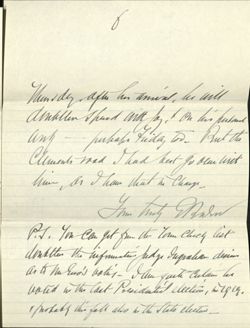 6
Thursday after his arrival, he will
doubtless spend with
and — perhaps Friday, too. But the
Clements road I had best go over with
him, as I have that in charge.
Yours truly
P.S. You can get from the Town Clerk's list
doubtless the information Judge Ingraham desires
as to Mr. votes — I am quite certain he
voted in the last Presidential election, in 1912.
& probably this fall also in the State election.